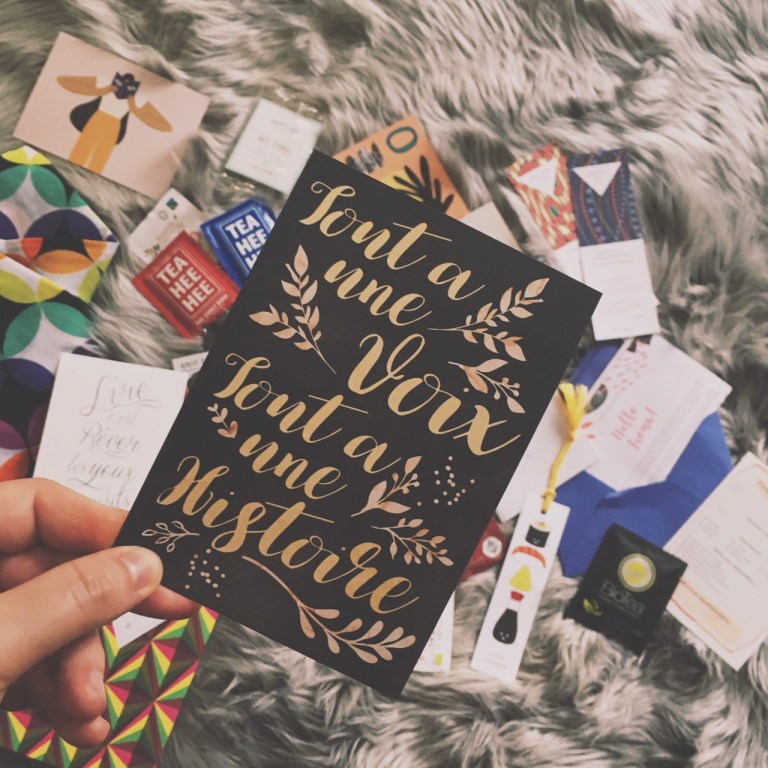 Tout a
une
Voix
Tout a
une
Histoire
TEA
HEE
HEE
TEA
HEE
HE
Lire
est
Rêver
les yeux
ouverts
Hello
Biotea